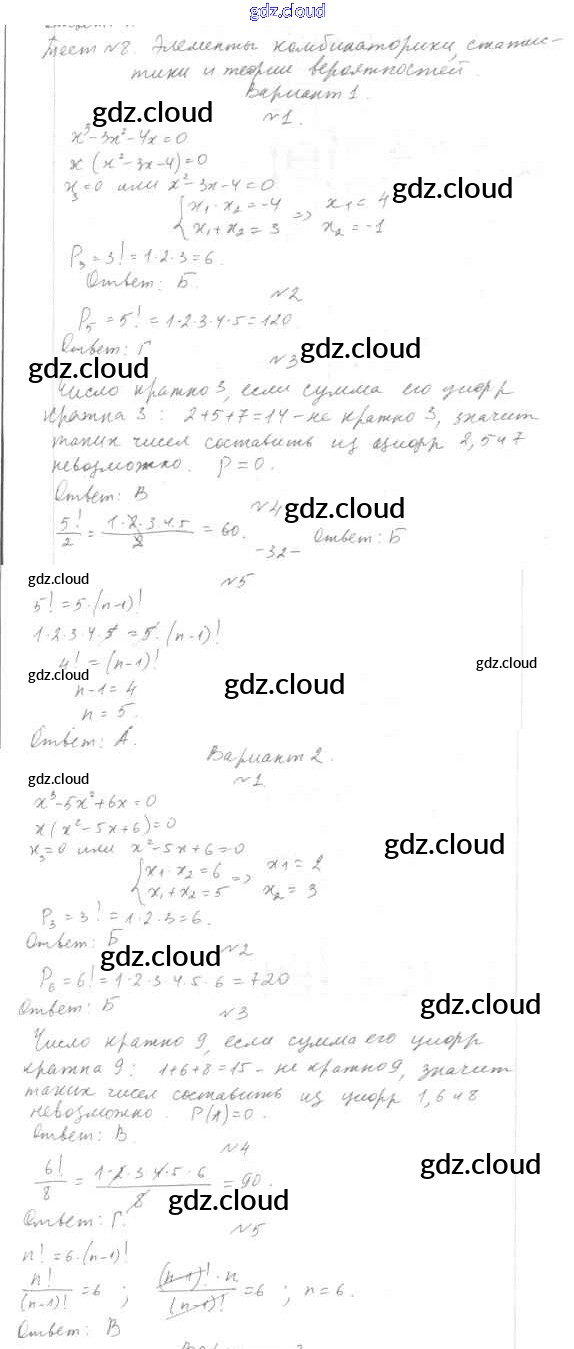 gdz.cloud
Тест №8. Элементы комбинаторики, статис-
тики и теории вероятностей.
Вариант 1.
gdz.cloud
№1.
x³-3x²-4x=0
x(x²-3x-4)=0
x₃=0 или x²-3x-4=0
gdz.cloud
{x₁·x₂=-4 => x₁=4
{x₁+x₂=3 x₂=-1
P₃=3!=1·2·3=6.
Ответ: Б.
№2
P₅=5!=1·2·3·4·5=120.
Ответ: Г
gdz.cloud
№3
gdz.cloud
Число кратно 3, если сумма его цифр
кратна 3: 2+5+7=14-не кратно 3, значит
таких чисел составить из цифр 2,5 и 7
невозможно. P=0.
Ответ: В
№4
gdz.cloud
5!/2 = 1·2·3·4·5/2 = 60. Ответ: Б
-32-
gdz.cloud
№5
5!=5·(n-1)!
1·2·3·4·5=5·(n-1)!
4!=(n-1)!
gdz.cloud
gdz.cloud
gdz.cloud
n-1=4
n=5.
Ответ: А.
Вариант 2.
gdz.cloud
№1.
x³-5x²+6x=0
x(x²-5x+6)=0
x₃=0 или x²-5x+6=0
gdz.cloud
{x₁·x₂=6 => x₁=2
{x₁+x₂=5 x₂=3
P₃=3!=1·2·3=6.
Ответ: Б
№2
gdz.cloud
P₆=6!=1·2·3·4·5·6=720
Ответ: Б
gdz.cloud
№3
Число кратно 9, если сумма его цифр
кратна 9: 1+6+8=15-не кратно 9, значит
таких чисел составить из цифр 1,6 и 8
невозможно. P(A)=0.
Ответ: В.
№4
gdz.cloud
6!/8 = 1·2·3·4·5·6/8 = 90.
gdz.cloud
Ответ: Г.
№5
n!=6·(n-1)!
n!/(n-1)! =6; (n-1)!·n/(n-1)! =6; n=6.
Ответ: В